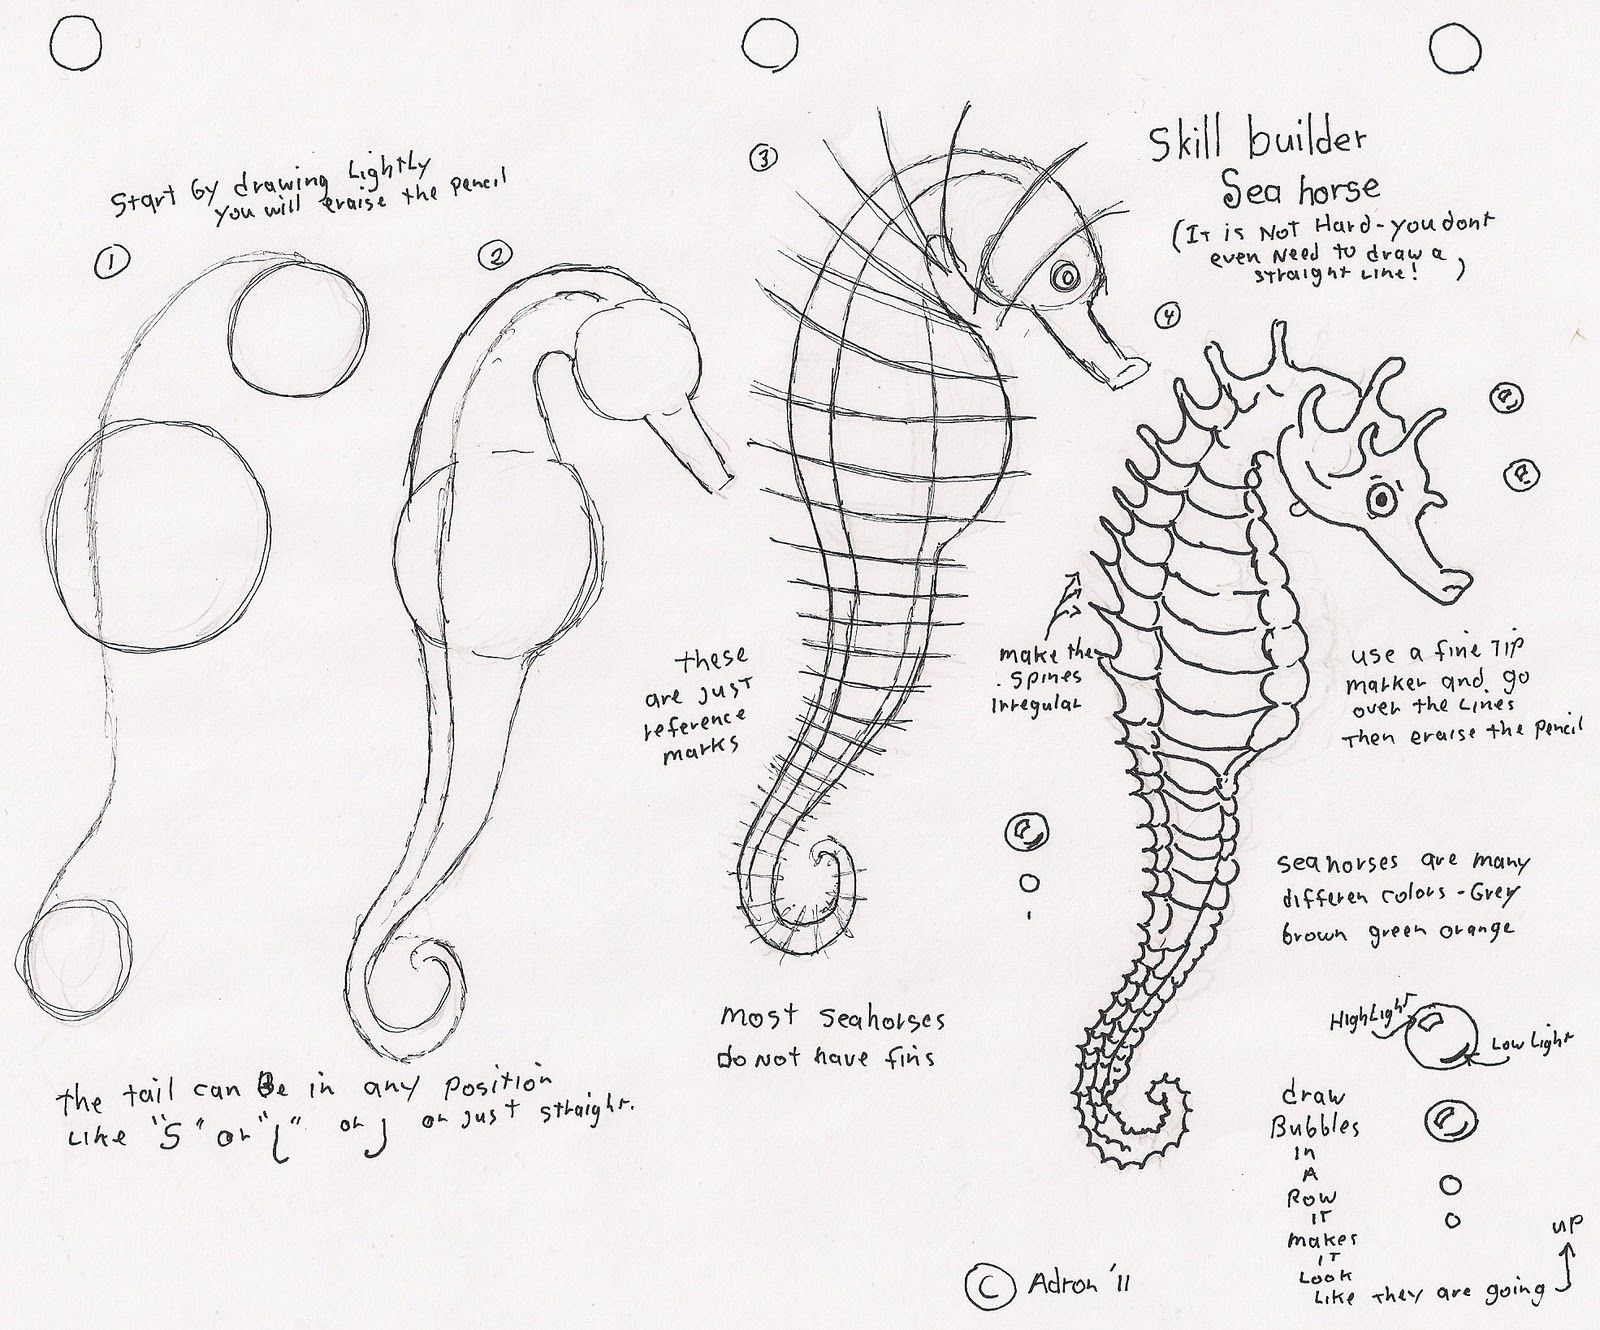 Skill builder
Sea horse
(It is Not Hard - you dont
even Need to draw a
straight Line! )
Start by drawing Lightly
you will eraise the pencil
1
2
3
4
these
are just
reference
marks
make the
spines
irregular
use a fine Tip
marker and go
over the Lines
Then eraise the pencil
seahorses are many
differen colors - Grey
brown green orange
most seahorses
do not have fins
HighLight
Low Light
the tail can Be in any position
Like "S" or "L" or J or just straight.
draw
Bubbles
in
A
Row
iT
makes
iT
Look
Like They are going
up
© Adron '11